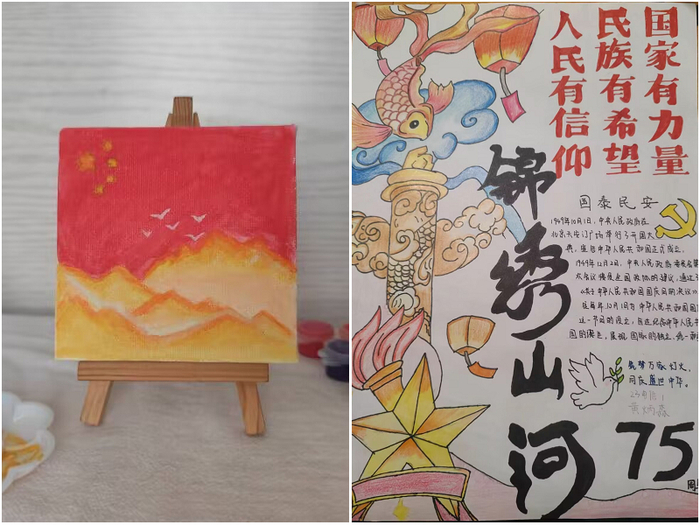 人民有信仰
民族有希望
国家有力量
锦绣山河
国泰民安
1949年10月1日,中央人民政府在
北京天安门广场举行了开国大
典,宣告中华人民共和国正式成立。
1949年12月2日,中央人民政府委员会
次会议接受全国政协的建议,通过了
《关于中华人民共和国国庆日的决议》
每年10月1日为中华人民共和国国
这一节日的设立,旨在纪念中华人民共
国的诞生,展现国家的独立、统一
万家灯火,
同庆盛世中华.
75
周